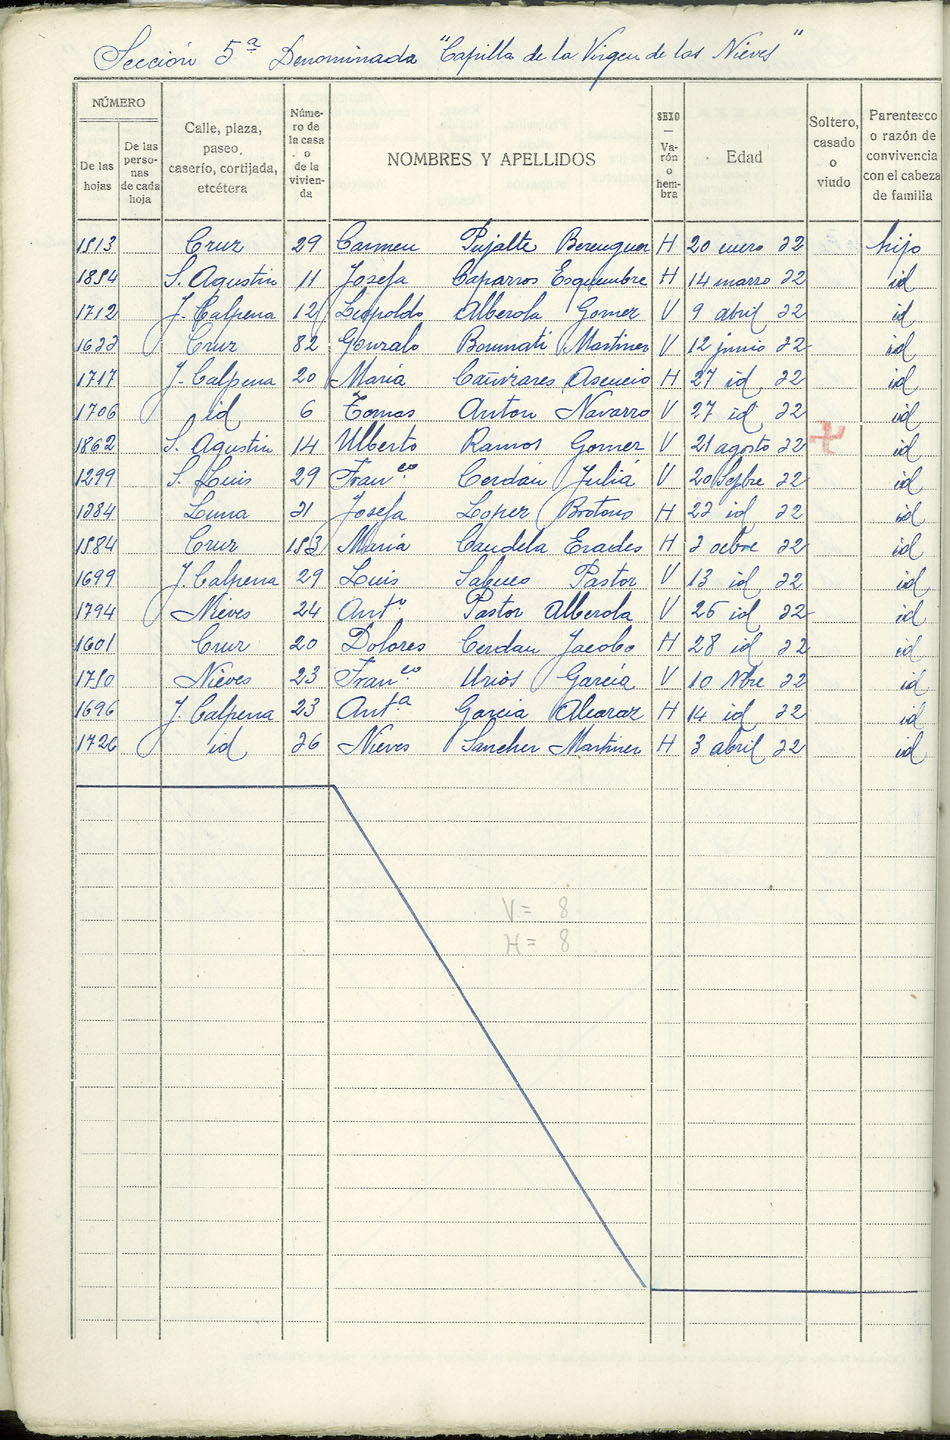 Sección 5ª Denominada "Capilla de la Virgen de las Nieves"
NÚMERO
De las hojas
De las perso- nas de cada hoja
Calle, plaza, paseo, caserío, cortijada, etcétera
Núme- ro de la casa o de la vivien- da
NOMBRES Y APELLIDOS
SEXO — Va- rón o hem- bra
Edad
Soltero, casado o viudo
Parentesco o razón de convivencia con el cabeza de familia
1513 Cruz 29 Carmen Pujalte Berenguer H 20 enero 22 hijo
1854 S. Agustin 11 Josefa Caparros Esquembre H 14 marzo 22 id
1712 J. Calpena 12 Leopoldo Alberola Gomez V 9 abril 22 id
1622 Cruz 82 Gonzalo Bonmati Martinez V 12 junio 22 id
1717 J. Calpena 20 Maria Cañizares Asencio H 27 id 22 id
1706 id 6 Tomas Anton Navarro V 27 id 22 id
1862 S. Agustin 14 Alberto Ramos Gomez V 21 agosto 22 id
1299 S. Luis 29 Franco. Cerdán Juliá V 20 Sepbre 22 id
1284 Luna 21 Josefa Lopez Brotons H 22 id 22 id
1584 Cruz 153 Maria Candela Erades H 2 ocbre 22 id
1699 J. Calpena 29 Luis Sabuco Pastor V 13 id 22 id
1794 Nieves 24 Antº. Pastor Alberola V 26 id 22 id
1601 Cruz 20 Dolores Cerdan Jacobo H 28 id 22 id
1750 Nieves 23 Franco. Urios García V 10 Nbre 22 id
1696 J. Calpena 23 Antª Garcia Alcaraz H 14 id 22 id
1726 id 36 Nieves Sanchez Martinez H 3 abril 22 id
V = 8
H = 8